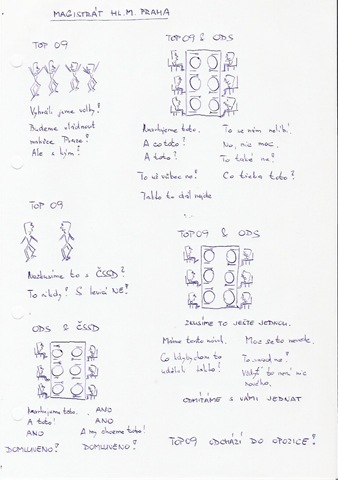 MAGISTRÁT HL. M. PRAHA
TOP 09
Vyhráli jsme volby?
Budeme vládnout
matičce Praze?
Ale s kým?
TOP 09 & ODS
Navrhujeme toto.
A co toto?
A toto?
To už vůbec ne?
To se nám nelíbí.
No, nic moc.
To také ne?
Co třeba toto?
Takto to dál nejde
TOP 09
Nezkusíme to s ČSSD?
To nikdy? S levicí NE?
ODS & ČSSD
Navrhujeme toto. ANO
A toto! ANO
ANO A my chceme toto!
DOMLUVENO? DOMLUVENO?
TOP 09 & ODS
ZKUSÍME TO JEŠTĚ JEDNOU.
Máme tento návrh.
Co kdybychom to
udělali takto?
Moc se to nevede.
To vůbec ne?
Vždyť to není nic
nového.
ODMÍTÁME S VÁMI JEDNAT
TOP 09 ODCHÁZÍ DO OPOZICE?